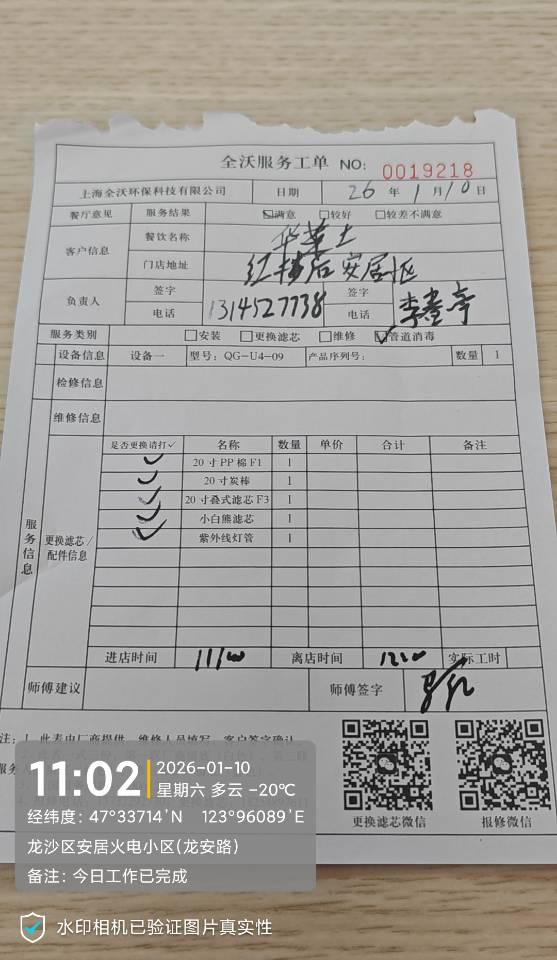 全沃服务工单 NO: 0019218
上海全沃环保科技有限公司 日期 26 年 1 月 10 日
餐厅意见 服务结果 ☑满意 □较好 □较差不满意
客户信息 餐饮名称 华莱士
门店地址 安居小区
负责人 签字 签字
电话 1314527738 电话
服务类别 □安装 □更换滤芯 □维修 ☑管道消毒
设备信息 设备一 型号: QG-U4-09 产品序列号: 数量 1
检修信息
维修信息
服务信息
更换滤芯/配件信息
是否更换请打✓ 名称 数量 单价 合计 备注
✓ 20寸PP棉F1 1
✓ 20寸炭棒 1
✓ 20寸叠式滤芯F3 1
✓ 小白熊滤芯 1
✓ 紫外线灯管 1
进店时间 离店时间 实际工时
师傅建议 师傅签字
注: 1. 此表由厂商提供, 维修人员填写, 客户签字确认。
更换滤芯微信 报修微信
11:02 2026-01-10
星期六 多云 -20℃
经纬度: 47°33714'N 123°96089'E
龙沙区安居火电小区(龙安路)
备注: 今日工作已完成
水印相机已验证图片真实性